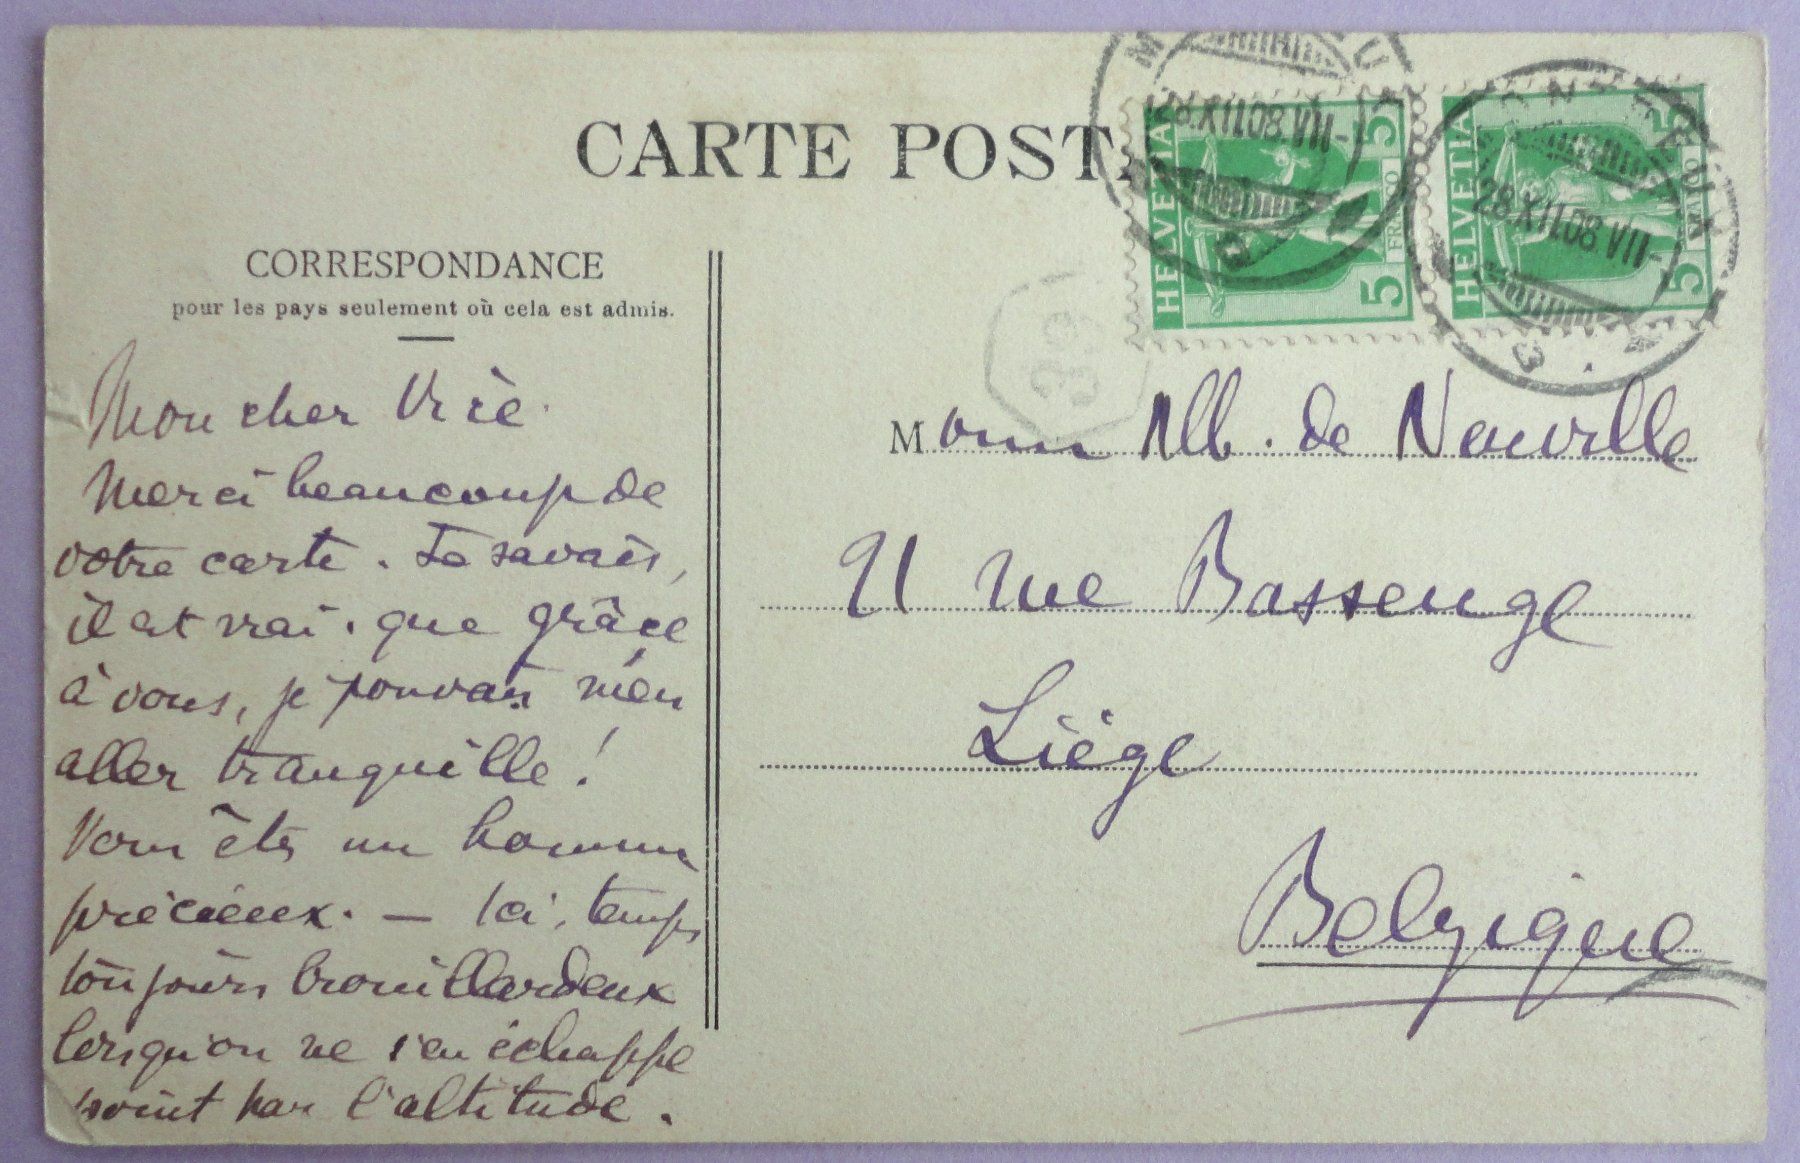 CARTE POST
HELVETIA
5
5
FRANCO
28.XII.08.VII-
HELVETIA
5
5
FRANCO
MONTREUX
28.XII.08.VII-
CORRESPONDANCE
pour les pays seulement où cela est admis.
Mon cher
Merci beaucoup de
votre carte. Je savais,
il est vrai. que grâce
à vous, je pouvais m'en
aller tranquille!
Vous êtes un homme
précieux. — Ici, temps
toujours brouillardeux
lorsqu'on ne s'en échappe
point par l'altitude.
Monsr Alb. de Neuville
rue Bassenge
Liège
Belgique